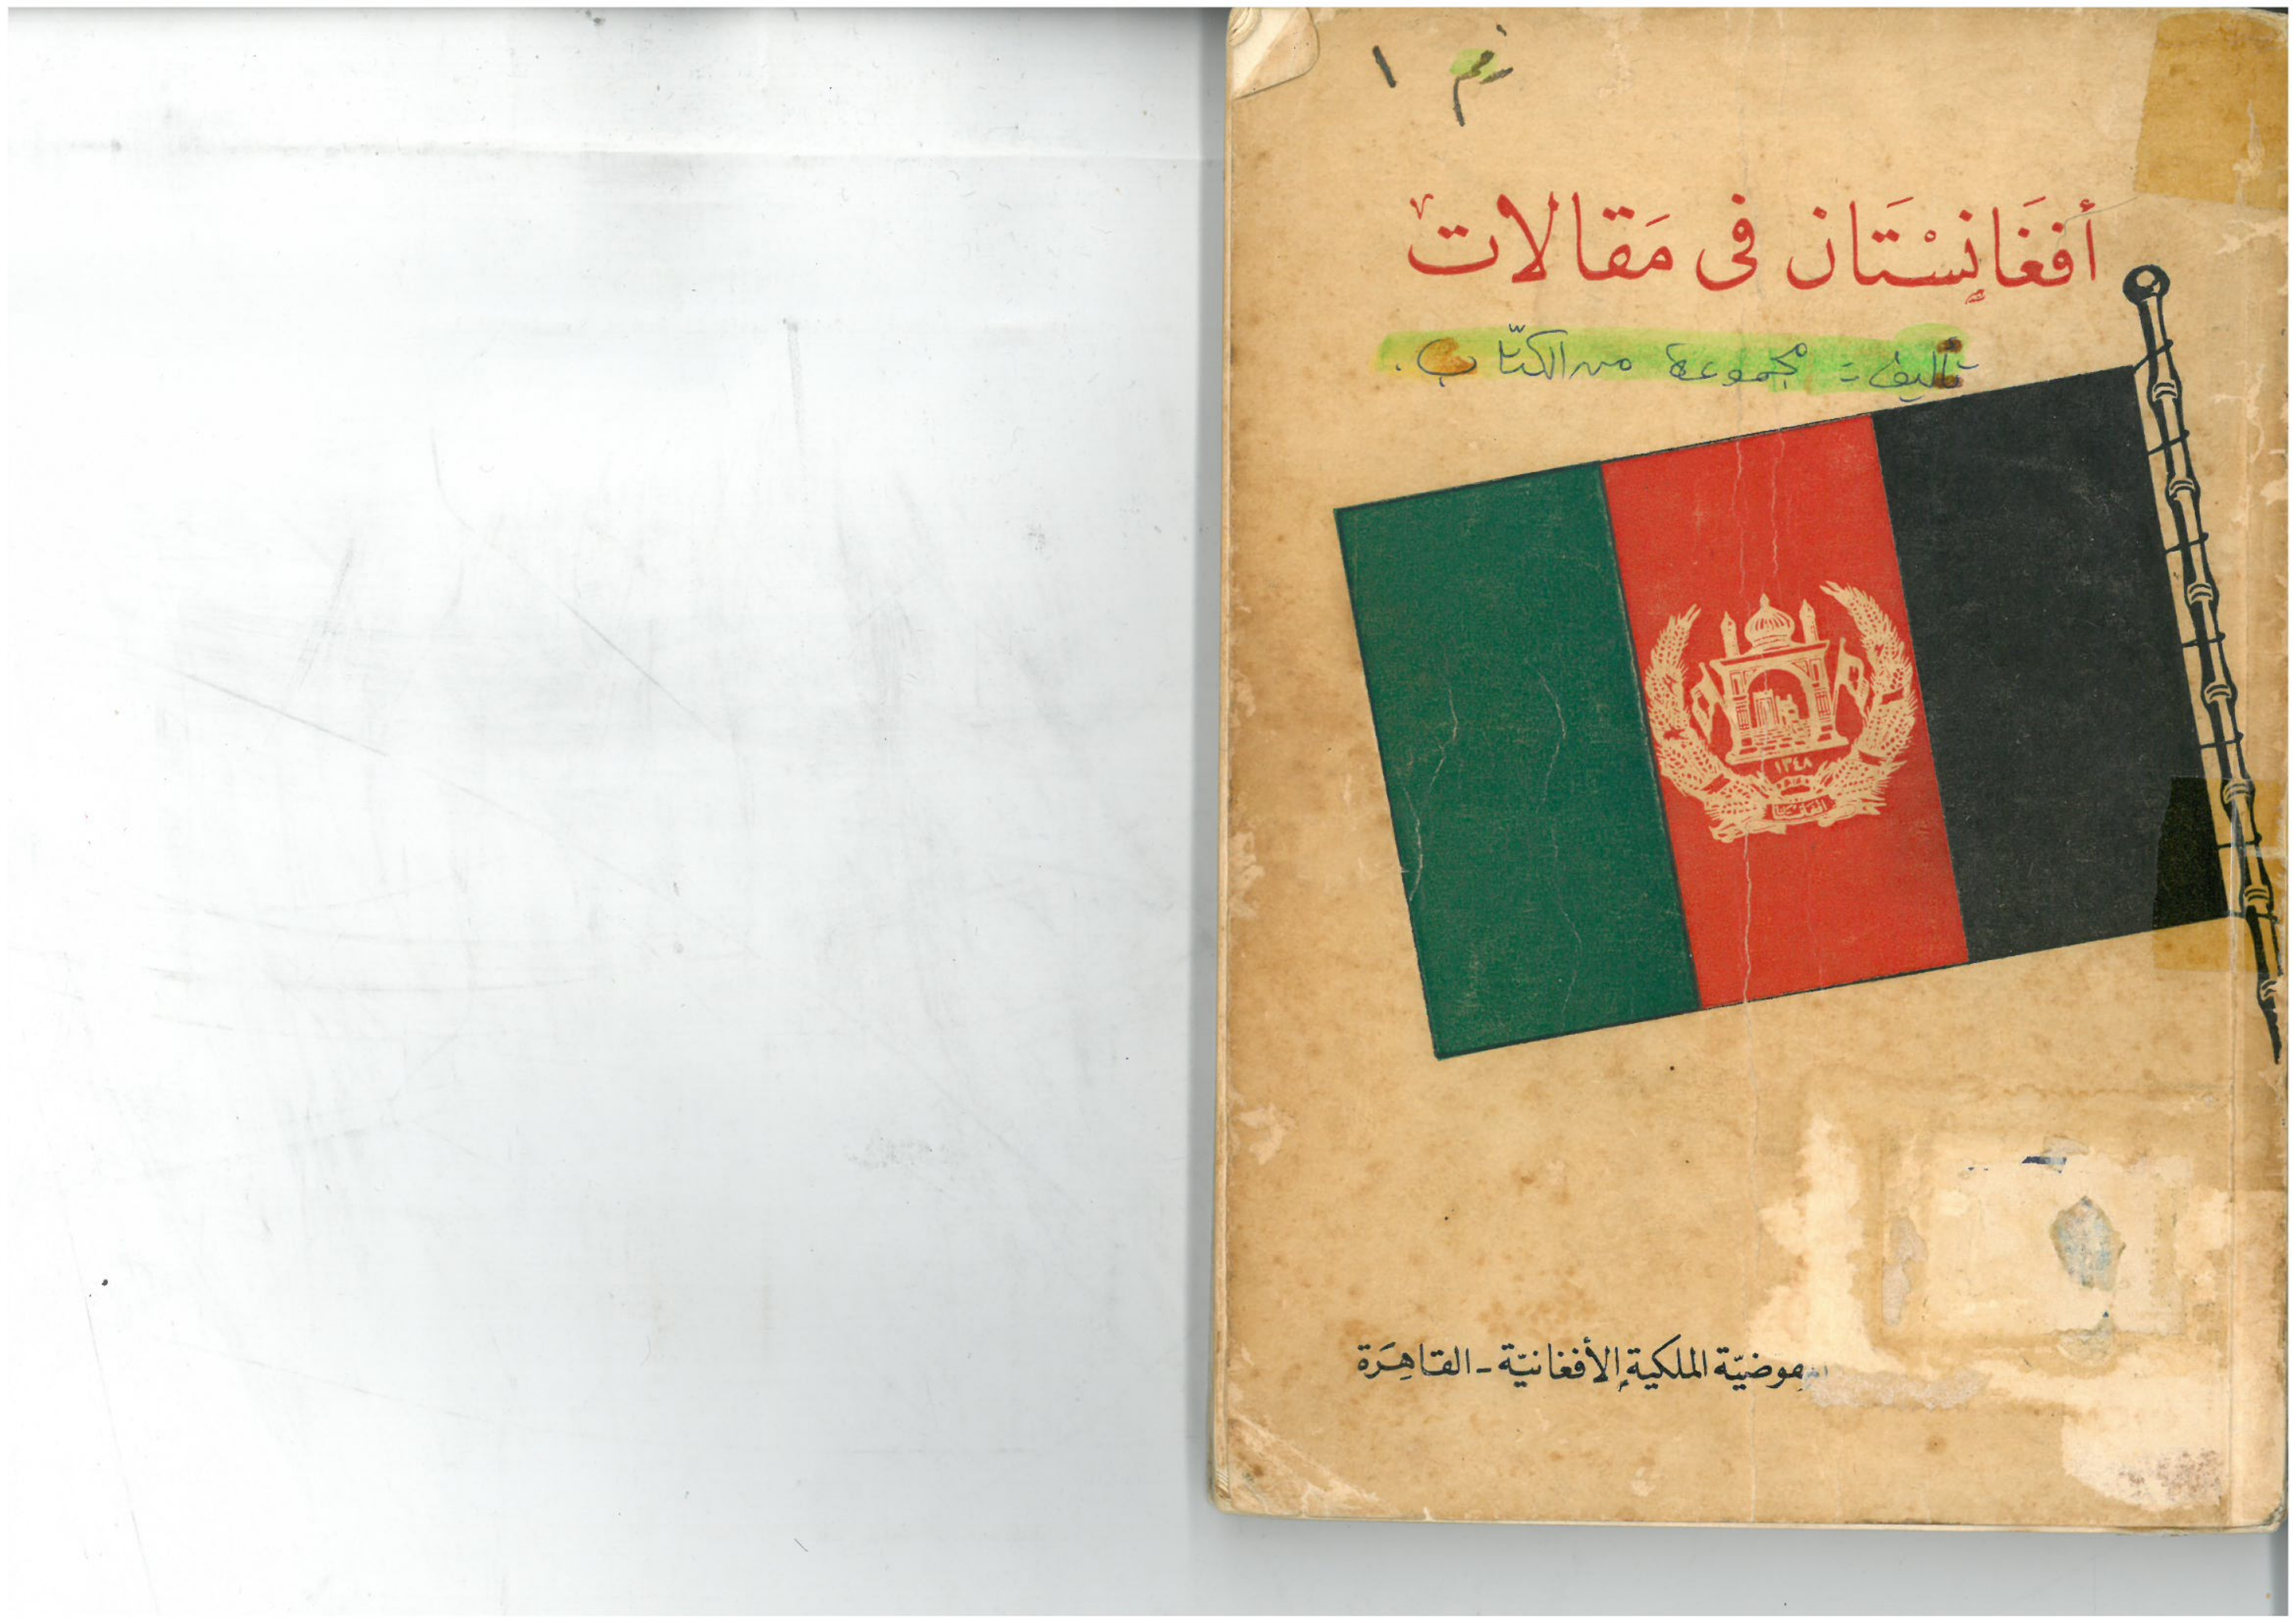 رقم ١
أفغَانِسْتَان فى مَقالات
تأليف = مجموعة من الكتّاب.
١٣٤٨
الملكية الأفغانيّة - القاهِرَة